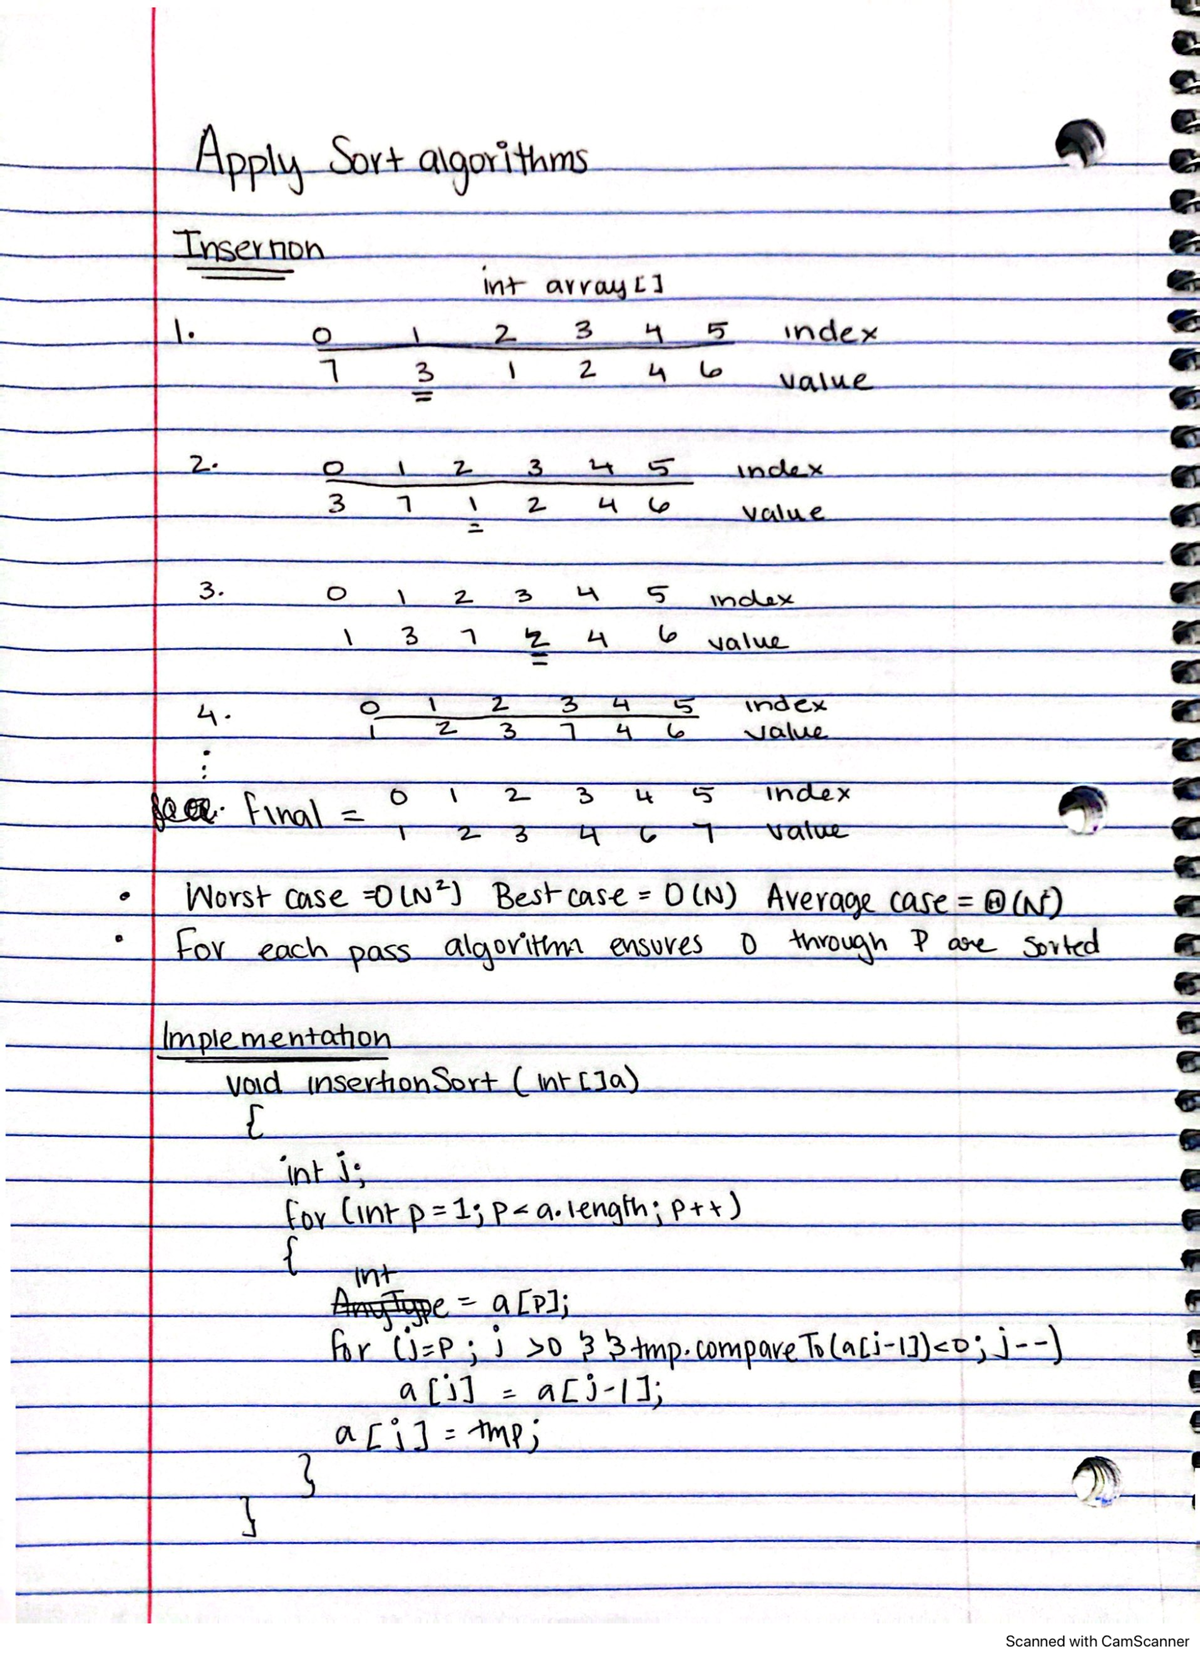 Apply Sort algorithms
Insertion
int array[]
1. 0 1 2 3 4 5 index
7 3 1 2 4 6 value
2. 0 1 2 3 4 5 index
3 7 1 2 4 6 value
3. 0 1 2 3 4 5 index
1 3 7 2 4 6 value
4. 0 1 2 3 4 5 index
1 2 3 7 4 6 value
⋮
Final = 0 1 2 3 4 5 index
1 2 3 4 6 7 value
• Worst case =O(N²) Best case = O(N) Average case = Θ(N²)
• For each pass algorithm ensures 0 through P are sorted
Implementation
void insertionSort (int[]a)
{
int j;
for (int p = 1; p < a.length; p++)
{
int
AnyType = a[p];
for (j=p ; j >0 && tmp.compareTo(a[j-1])<0; j--)
a[j] = a[j-1];
a[j] = tmp;
}
}
Scanned with CamScanner